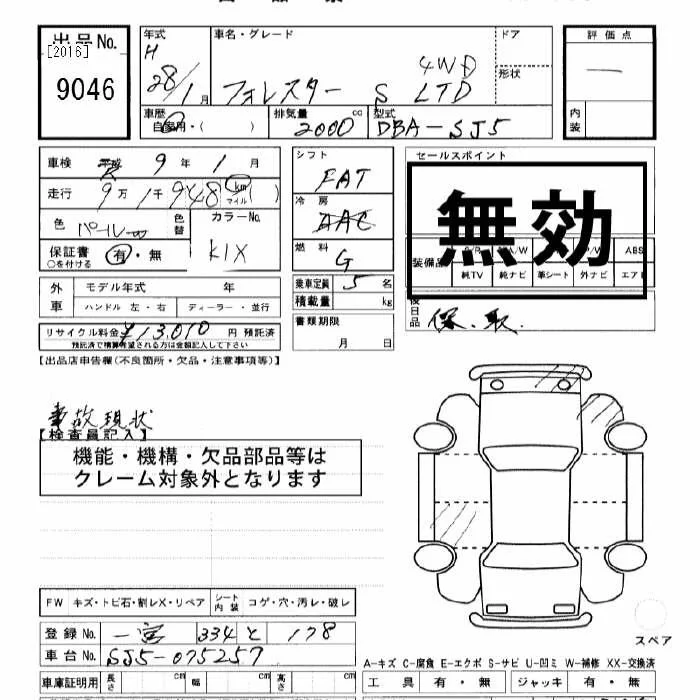 出品No.
[2016]
9046
年式
H
28/1月
車名・グレード
フォレスター S LTD
4WD
ドア
形状
評価点
内装
車歴
自家用・( )
排気量
2000 cc
型式
DBA-SJ5
車検 9年 1月
走行 9万 1千 948 km マイル ( )
色 パール
色替
カラーNo.
K1X
保証書 有・無
○を付ける
シフト
FAT
冷房
AAC
燃料
G
乗車定員 5名
積載量 kg
書類期限
月 日
セールスポイント
無効
装備品
ABS
純TV 純ナビ 革シート 外ナビ エアB
後日品
保.取.
外車
モデル年式 年
ハンドル 左・右 ディーラー・並行
リサイクル料金 ¥13,010 円 預託済
預託済で精算希望される方は金額記入して下さい
【出品店申告欄(不良箇所・欠品・注意事項等)】
事故現状
【検査員記入】
機能・機構・欠品部品等は
クレーム対象外となります
FW キズ・トビ石・割レX・リペア シート内装 コゲ・穴・汚レ・破レ
登録No. 一宮 334 と 178
車台No. SJ5-075257
スペア
A-キズ C-腐食 E-エクボ S-サビ U-凹ミ W-補修 XX-交換済
車庫証明用 長さ cm 幅 cm 高さ cm
工具 有・無 ジャッキ 有・無